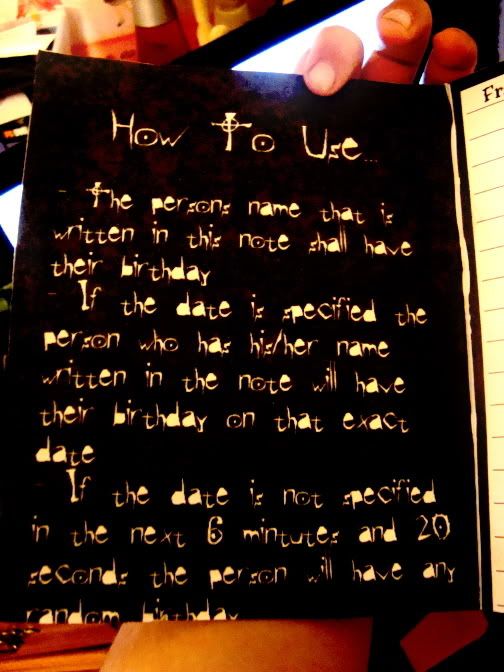 How To Use...
- The persons name that is
written in this note shall have
their birthday
- If the date is specified the
person who has his/her name
written in the note will have
their birthday on that exact
date
- If the date is not specified
in the next 6 mintutes and 20
seconds the person will have any
random birthday
Fr